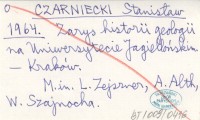 CZARNIECKI Stanisław
1964. Zarys historii geologii
na Uniwersytecie Jagiellońskim
— Kraków.
M.in. L. Zejszner, A. Alth,
W. Szajnocha.